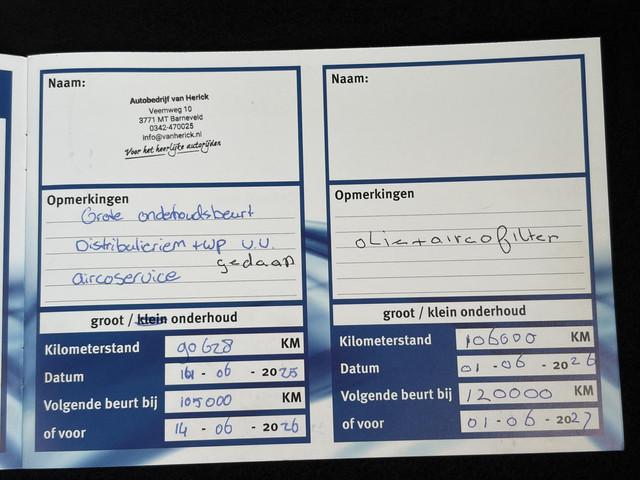 Naam:
Autobedrijf van Herick
Veemweg 10
3771 MT Barneveld
0342-470025
info@vanherick.nl
Voor het heerlijke autorijden
Opmerkingen
Grote onderhoudsbeurt
Distributieriem + wp v.v.
gedaan
aircoservice
groot / klein onderhoud
Kilometerstand 90628 KM
Datum - 06 - 2025
Volgende beurt bij 105000 KM
of voor 14 - 06 - 2026
Naam:
Opmerkingen
olie + aircofilter
groot / klein onderhoud
Kilometerstand 106000 KM
Datum 01 - 06 - 2026
Volgende beurt bij 120000 KM
of voor 01 - 06 - 2027